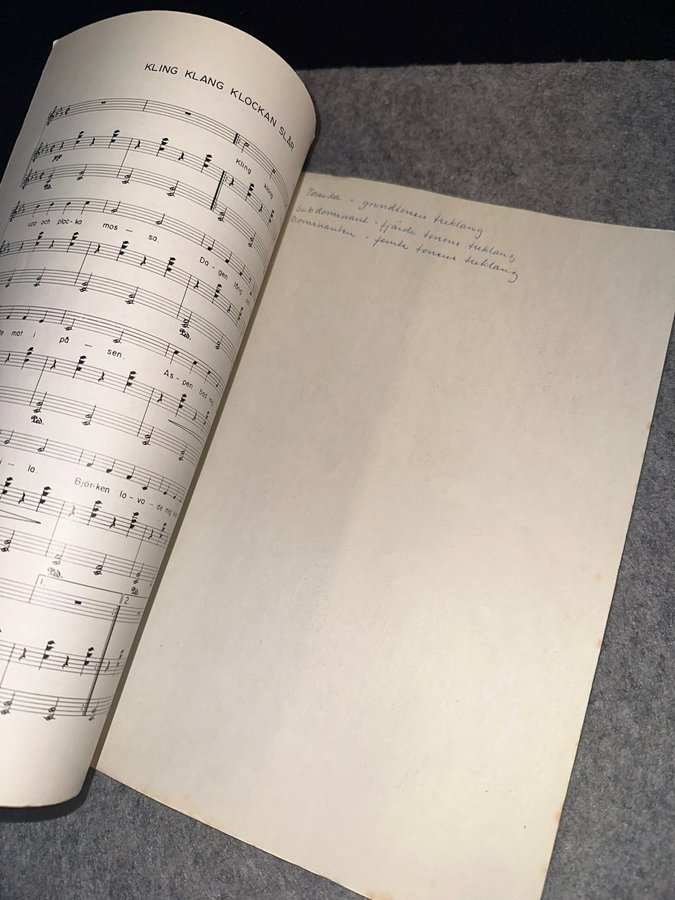 KLING KLANG KLOCKAN SLÅR
pp
Kling klang
upp och ploc-ka mos - sa. Da - gen lång
mat i på - sen. As - pen bad mig
la. Björ-ken lo - va - de mig
1.
2.
Tonika - grundtonens treklang
Subdominant - fjärde tonens treklang
Dominanten - femte tonens treklang